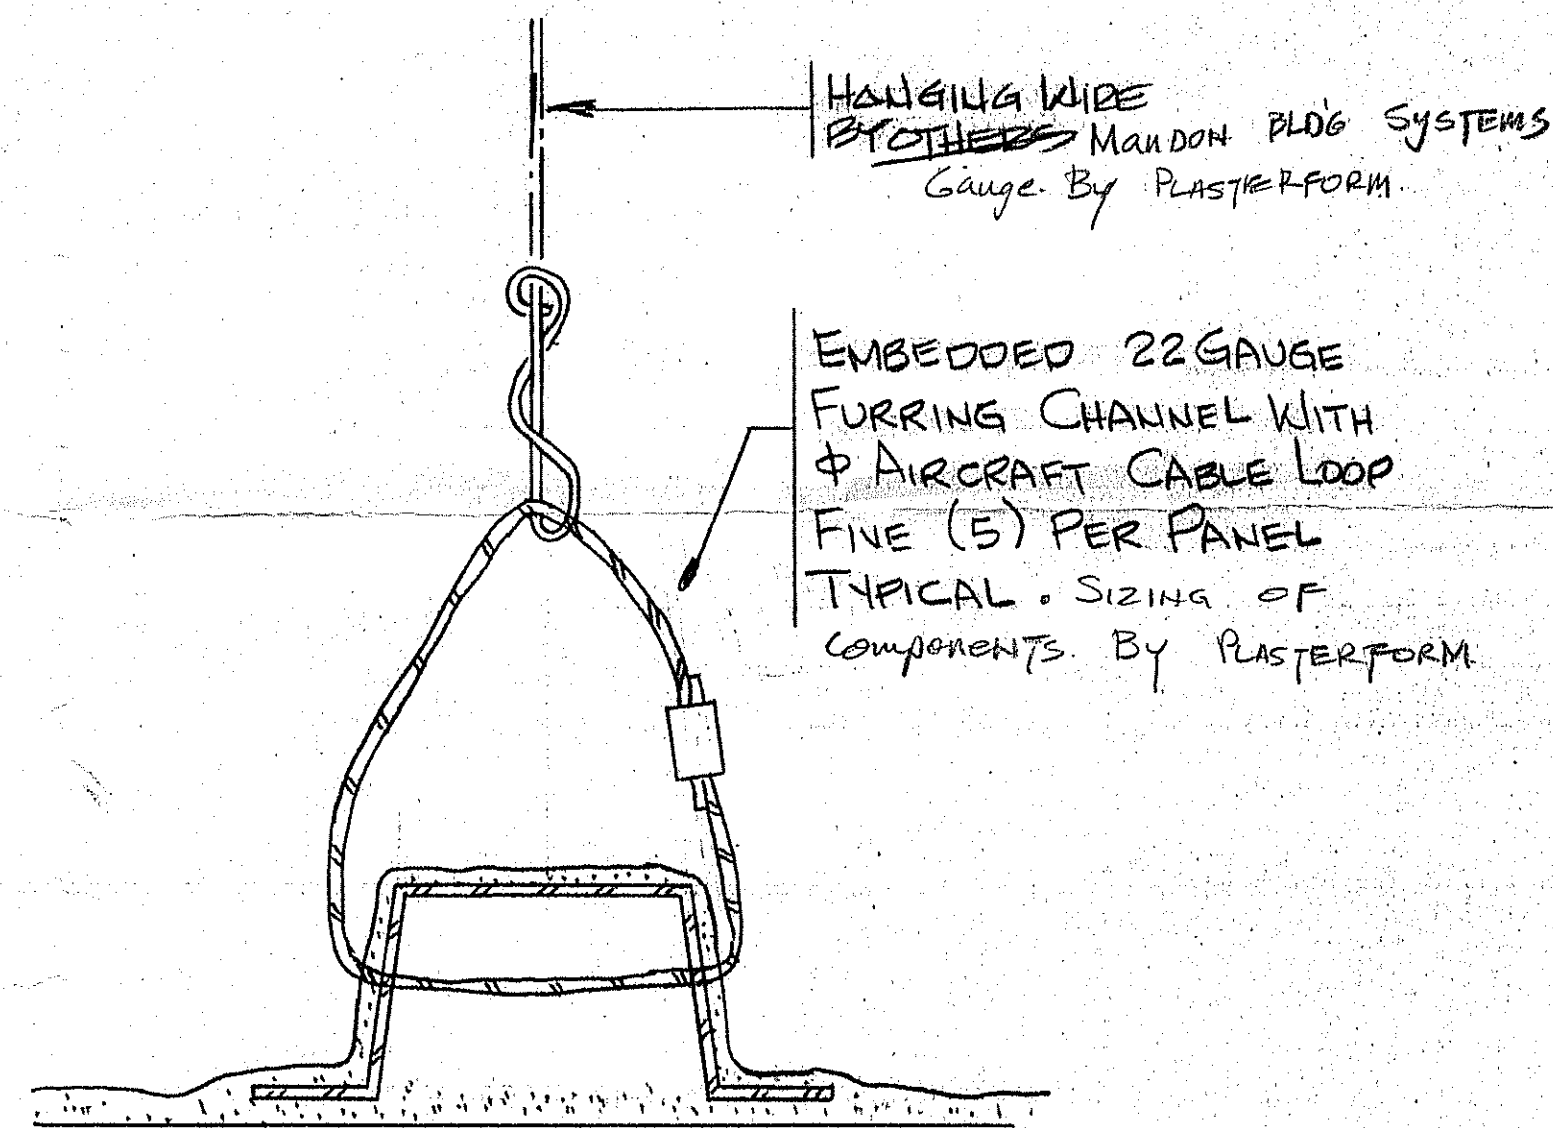 HANGING WIRE
BY OTHERS MANDON BLDG SYSTEMS
Gauge. By PLASTERFORM.
EMBEDDED 22 GAUGE
FURRING CHANNEL WITH
Φ AIRCRAFT CABLE LOOP
FIVE (5) PER PANEL
TYPICAL. SIZING OF
Components. By PLASTERFORM